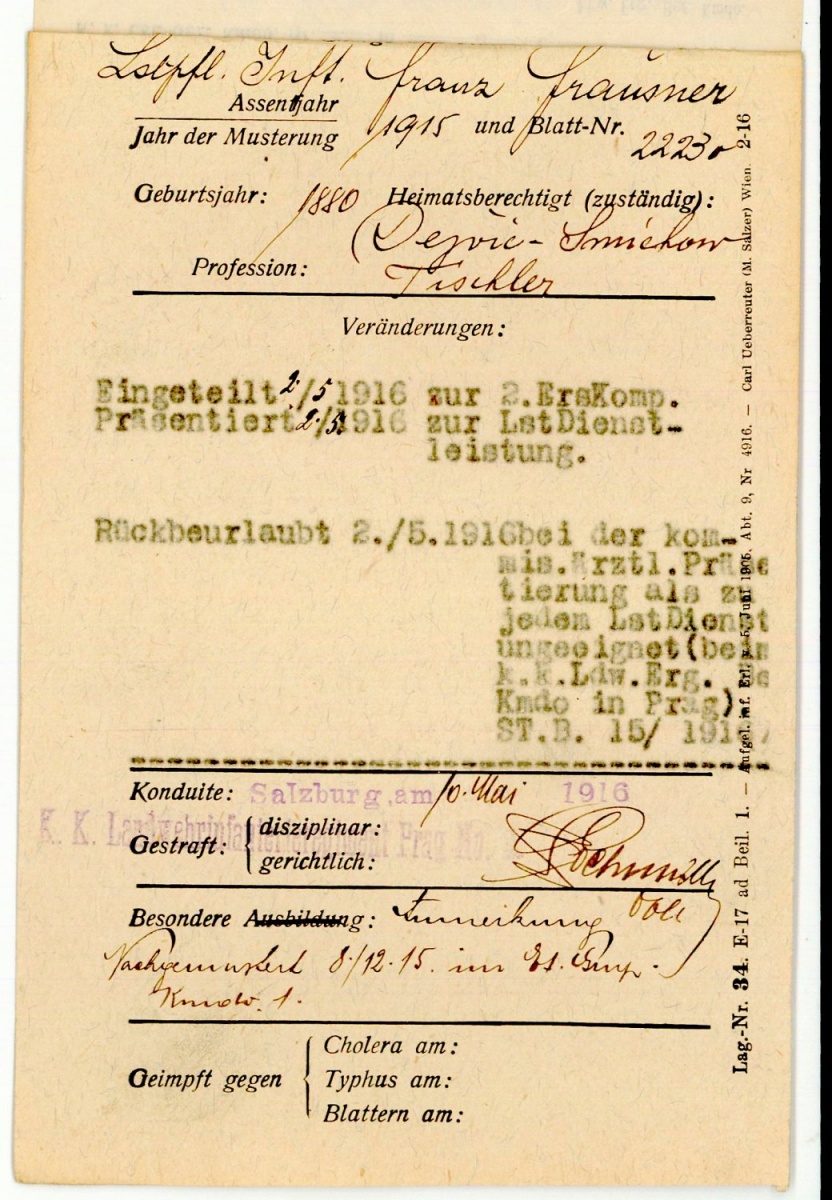 Lstpfl. Inft. Franz Frausner
Assentjahr
Jahr der Musterung 1915 und Blatt-Nr. 2223
Geburtsjahr: 1880 Heimatsberechtigt (zuständig):
Dejvic - Smichow
Profession: Tischler
Veränderungen:
Eingeteilt 2/5 1916 zur 2.ErsKomp.
Präsentiert 2/5 1916 zur LstDienst-
leistung.
Rückbeurlaubt 2./5.1916 bei der kom-
mis.ärztl.Präse
tierung als zu
jedem LstDienst
ungeeignet(beim
k.k.Ldw.Erg. Be
Kmdo in Prag).
ST.B. 15/ 1916
Konduite: Salzburg, am 10. Mai 1916
K. K. Landwehrinfanterieregiment Prag No.
Gestraft: { disziplinar:
gerichtlich:
Besondere Ausbildung: Anmerkung
Nachgemustert 8/12.15. im
Kmdo. 1.
Geimpft gegen { Cholera am:
Typhus am:
Blattern am:
Lag.-Nr. 34. E-17 ad Beil. 1. — Aufgel. inf. Erl. v. 5. Juni 1905, Abt. 9, Nr 4916. — Carl Ueberreuter (M. Salzer) Wien. 2-16